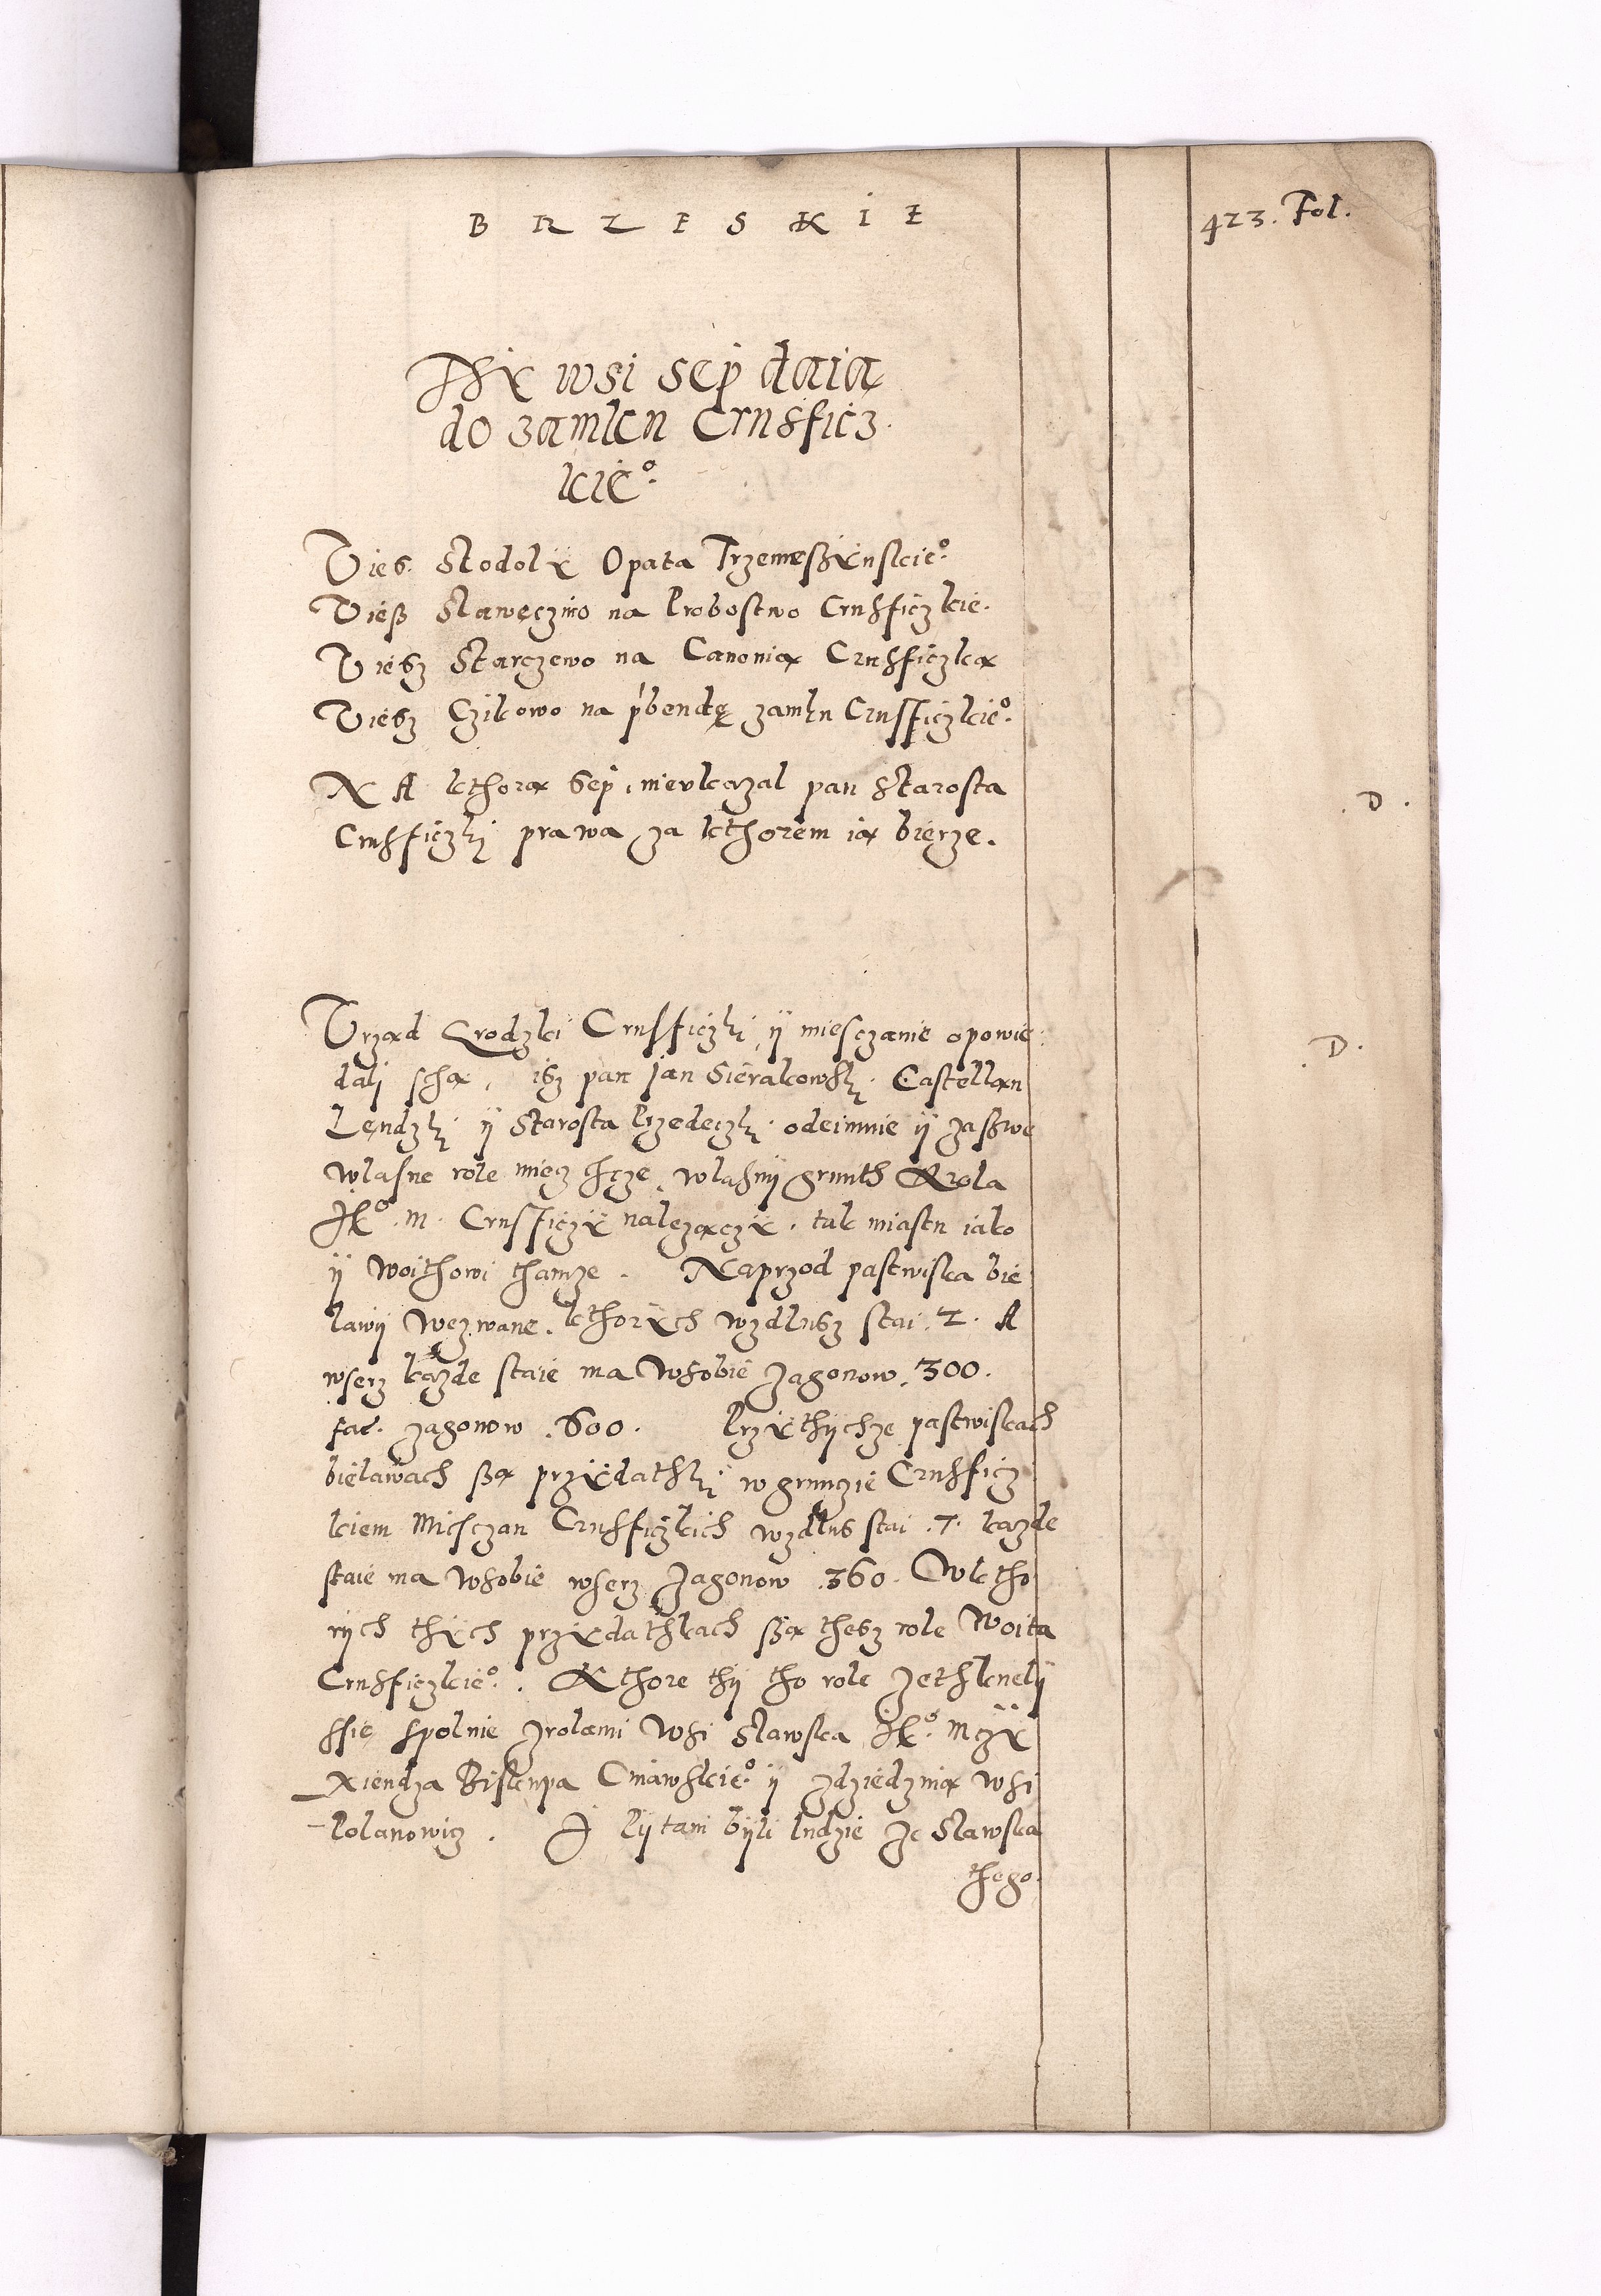 BRZESKIE
423. Fol.
Thÿ wsi sep daią
do zamku Crusficz
kie°.
Vies. Stodolÿ Opata Trzemeszÿnskie°.
Vieß Sławęczino na Probostwo Crusficzkie.
Viesz Starczewo na Canonią Crusficzką
Viesz Czikowo na p'bendę zamku Crusficzkie°.
NA kthorą sep, nieukazal pan Starosta
Crusficzki prawa za kthorem ią bierze.
. D .
Vrząd Grodzki Crusficzki, ÿ miesczanie opowie
D.
dali schą, isz pan Jan Sierakowski. Castellan
Lendzki ÿ Starosta Przedeczki. odeimuie ÿ zaßwe
własne role mieczchcze, własnÿ grunth Krola
Jk°. m. Crusficzÿ nalezączÿ. tak miastu iako
ÿ woithowi thamze. Naprzod pastwiska bie
lawÿ wezwane. kthorÿch wzdlusz stai. 2. A
wserz kazde staie ma wsobie zagonow. 300.
fac. zagonow .600. Przÿthÿchze pastwiskach
bielawach ßą przÿdathki w grunczie Crusficz
kiem Miesczan Crusficzkich wzdlus stai .7. kazde
staie ma wsobie wserz zagonow .360. Wktho
rÿch thÿch przÿdathkach ßą thesz role Woita
Crusficzkie°. Kthore thÿ tho role zethknelÿ
ssie spolnie zrolami wsi Slawska Jk°. mczÿ
Xiendza Biskupa Cuiawskie°. ÿ zdziedzinią wsi
Polanowicz. I Pÿtani bÿli ludzie ze Slawska
thego.